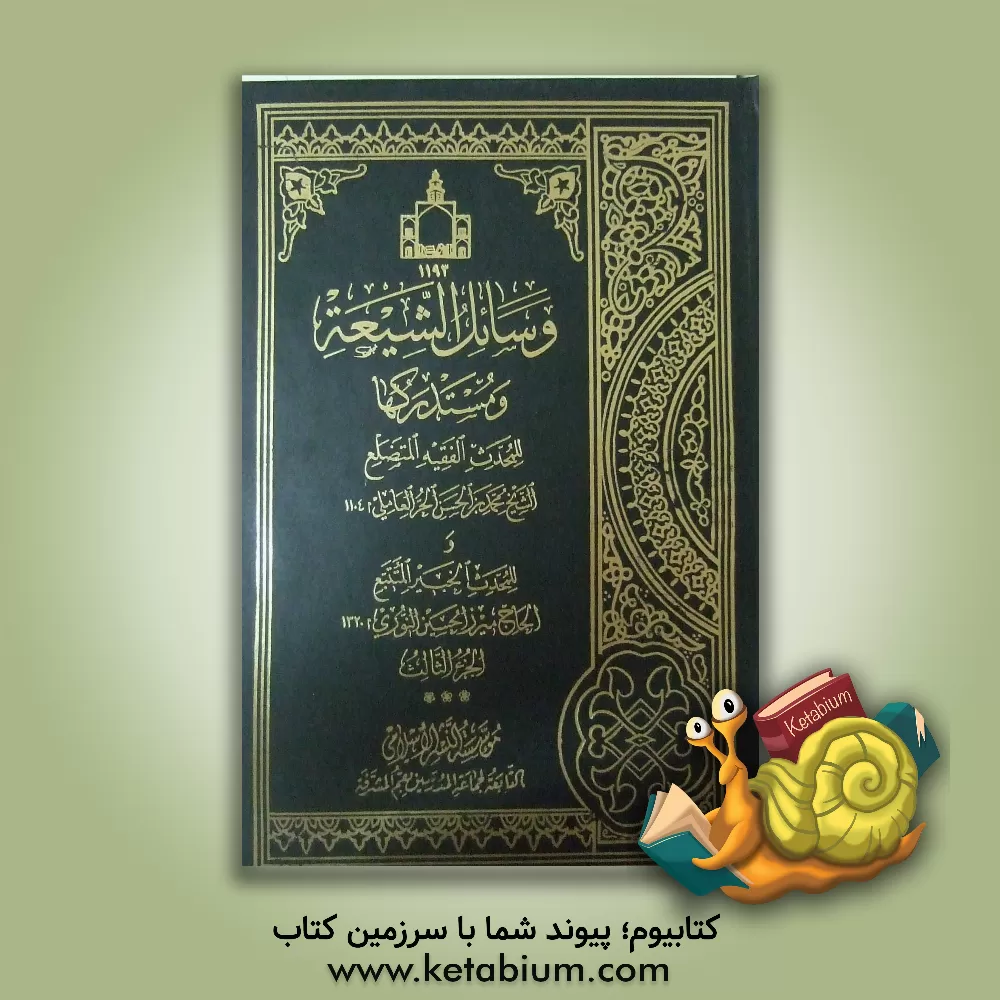 ١١٩٣
وَسَائِلُ الشِّيْعَةِ
وَمُسْتَدْرَكُهَا
لِلمُحَدِّثِ الفَقِيهِ المُتَضَلِّعِ
الشَّيْخِ مُحَمَّد بْنِ الحَسَنِ الحُرِّ العَامِلِيِّ م ١١٠٤
وَ
لِلمُحَدِّثِ الخَبِيْرِ المُتَتَبِّعِ
الحَاجِّ مِيرْزَا حُسَيْنِ النُّورِيِّ م ١٣٢٠
الجُزْءُ الثَّالِثُ
مؤسسة النشر الإسلامي
التابعة لجماعة المدرسين بقم المشرفة
Ketabium
کتابیوم؛ پیوند شما با سرزمین کتاب
www.ketabium.com